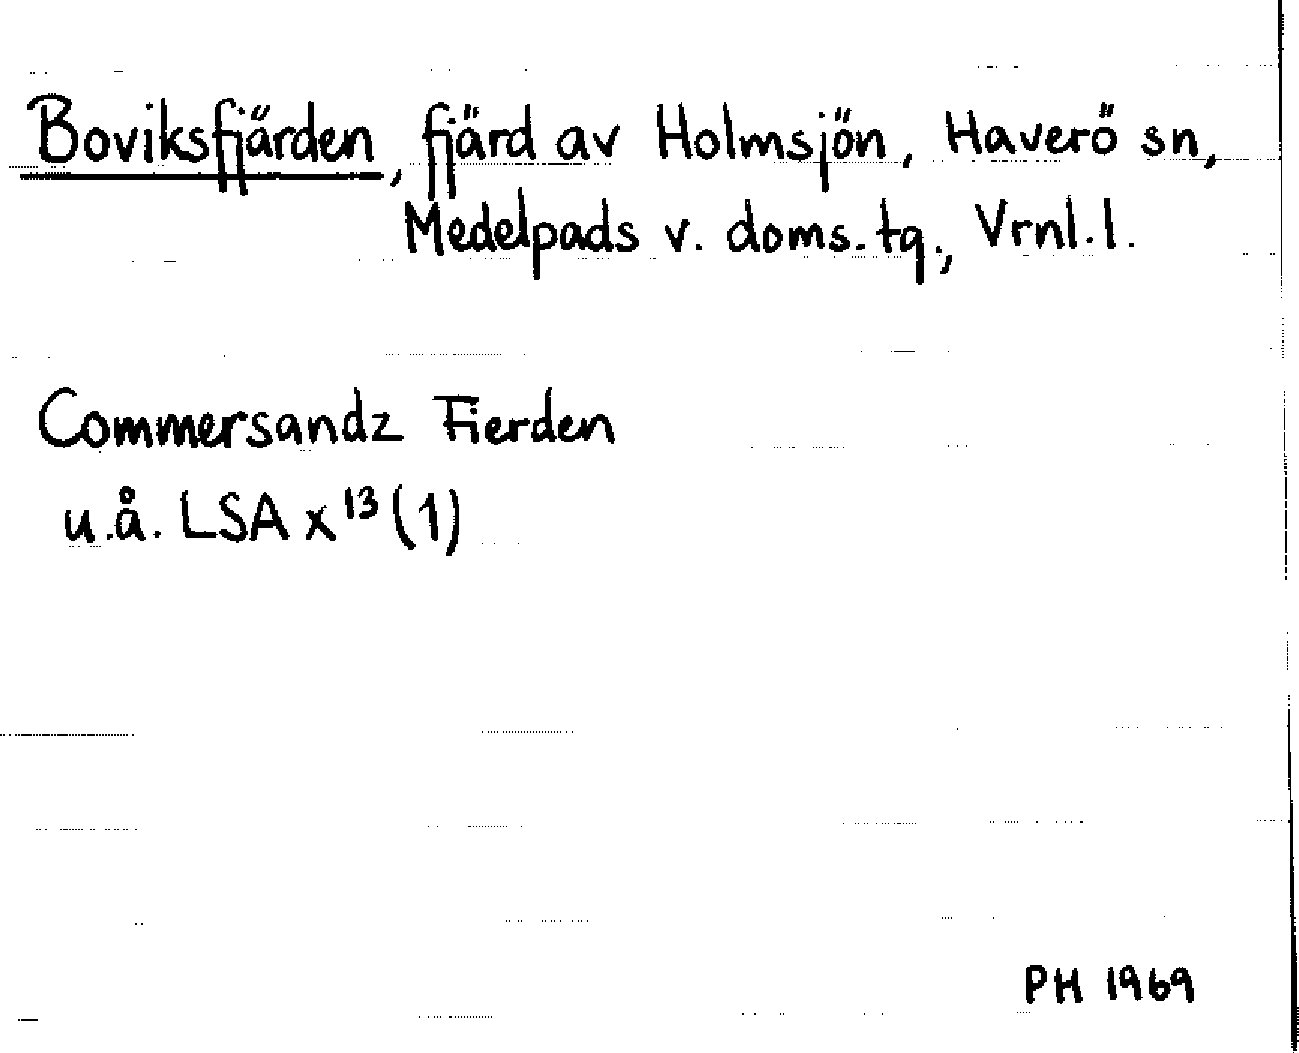 Boviksfjärden, fjärd av Holmsjön, Haverö sn,
Medelpads v. doms. tg., Vrnl. l.
Commersandz Fierden
u.å. LSA x¹³ (1)
PH 1969